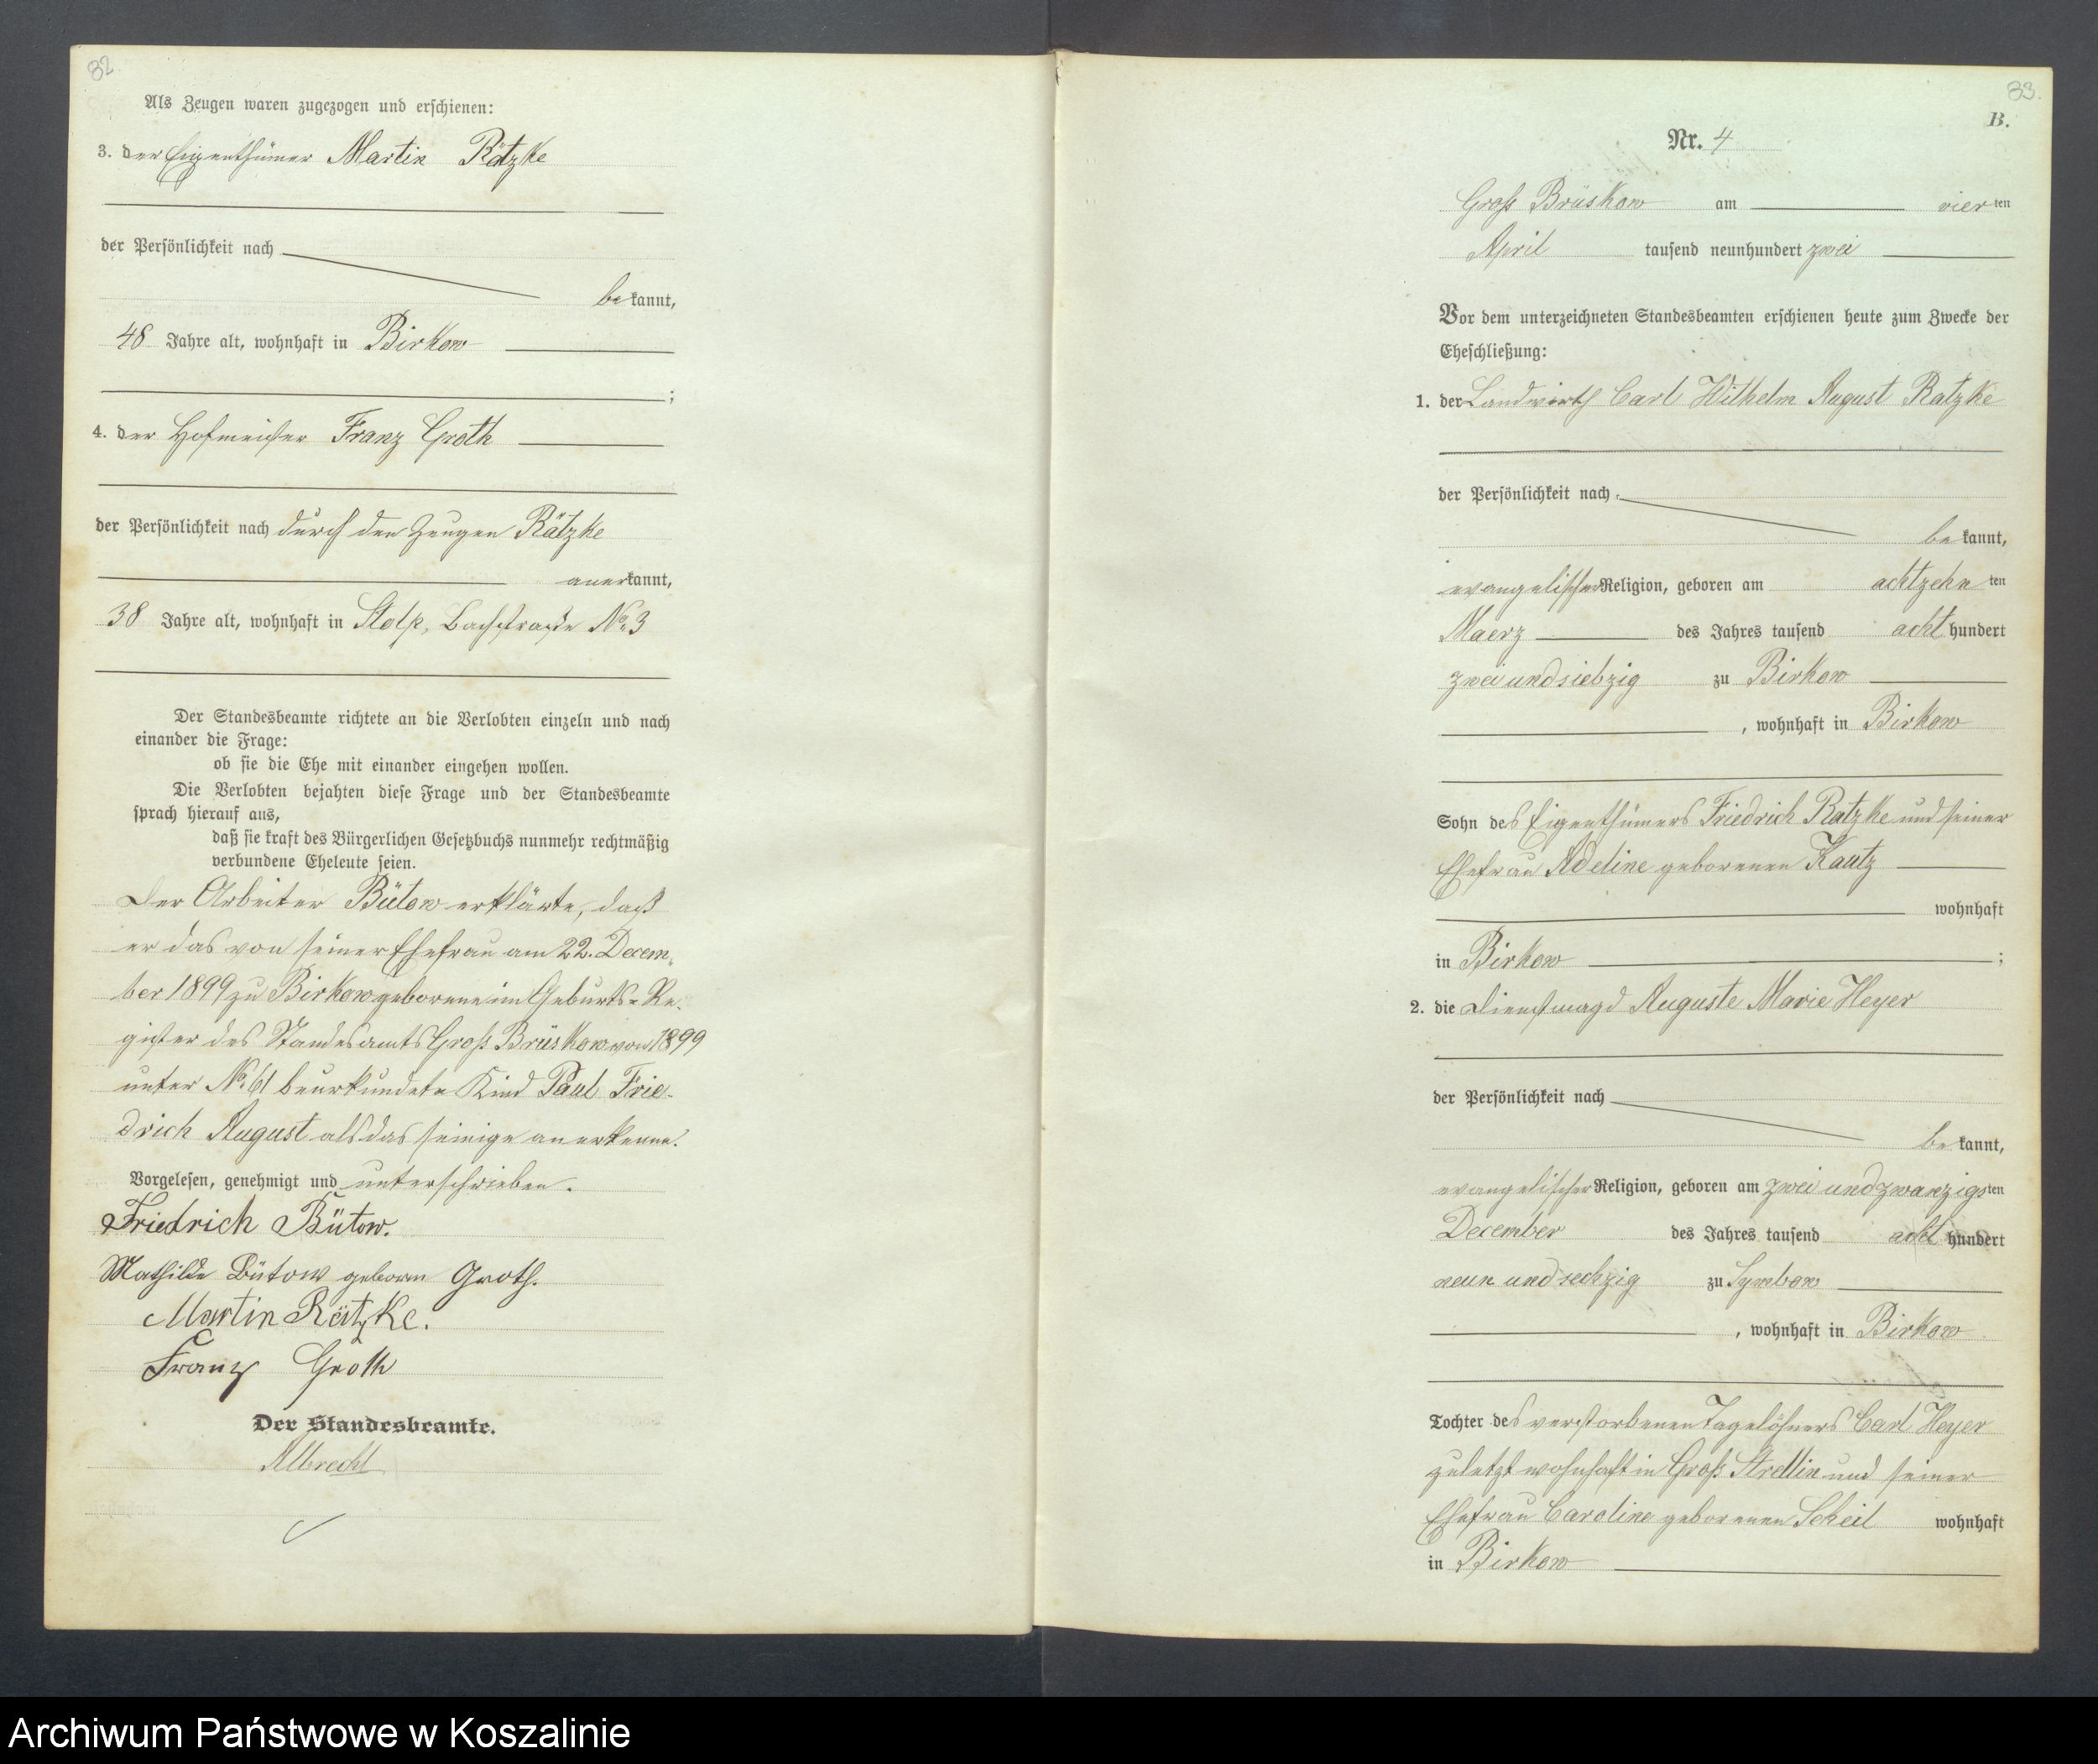 32.
Als Zeugen waren zugezogen und erschienen:
3. der Eigenthümer Martin Rätzke
der Persönlichkeit nach
bekannt,
48 Jahre alt, wohnhaft in Birkow
;
4. der Hofmeister Franz Groth
der Persönlichkeit nach durch den Zeugen Rätzke
anerkannt,
38 Jahre alt, wohnhaft in Stolp, Bachstraße No. 3
Der Standesbeamte richtete an die Verlobten einzeln und nach
einander die Frage:
ob sie die Ehe mit einander eingehen wollen.
Die Verlobten bejahten diese Frage und der Standesbeamte
sprach hierauf aus,
daß sie kraft des Bürgerlichen Gesetzbuchs nunmehr rechtmäßig
verbundene Eheleute seien.
Der Arbeiter Bütow erklärte, daß
er das von seiner Ehefrau am 22. Decem-
ber 1899 zu Birkow geborene im Geburts-Re-
gister des Standesamts Groß Brüskow von 1899
unter No. 61 beurkundete Kind Paul Frie-
drich August als das seinige anerkenne.
Vorgelesen, genehmigt und unterschrieben.
Friedrich Bütow.
Mathilde Bütow geborn Groth.
Martin Rätzke.
Franz Groth
Der Standesbeamte.
Albrecht
33.
B.
Nr. 4
Groß Brüskow am vierten
April tausend neunhundert zwei
Vor dem unterzeichneten Standesbeamten erschienen heute zum Zwecke der
Eheschließung:
1. der Landwirth Carl Wilhelm August Ratzke
der Persönlichkeit nach
bekannt,
evangelischer Religion, geboren am achtzehnten
Maerz des Jahres tausend achthundert
zwei und siebzig zu Birkow
, wohnhaft in Birkow
Sohn des Eigenthümers Friedrich Ratzke und seiner
Ehefrau Adeline geborenen Kautz
wohnhaft
in Birkow ;
2. die Dienstmagd Auguste Marie Heyer
der Persönlichkeit nach
bekannt,
evangelischer Religion, geboren am zwei und zwanzigsten
December des Jahres tausend achthundert
neun und sechzig zu Symbow
, wohnhaft in Birkow
Tochter des verstorbenen Tagelöhners Carl Heyer
zuletzt wohnhaft in Groß Strellin und seiner
Ehefrau Caroline geborenen Scheil wohnhaft
in Birkow
Archiwum Państwowe w Koszalinie